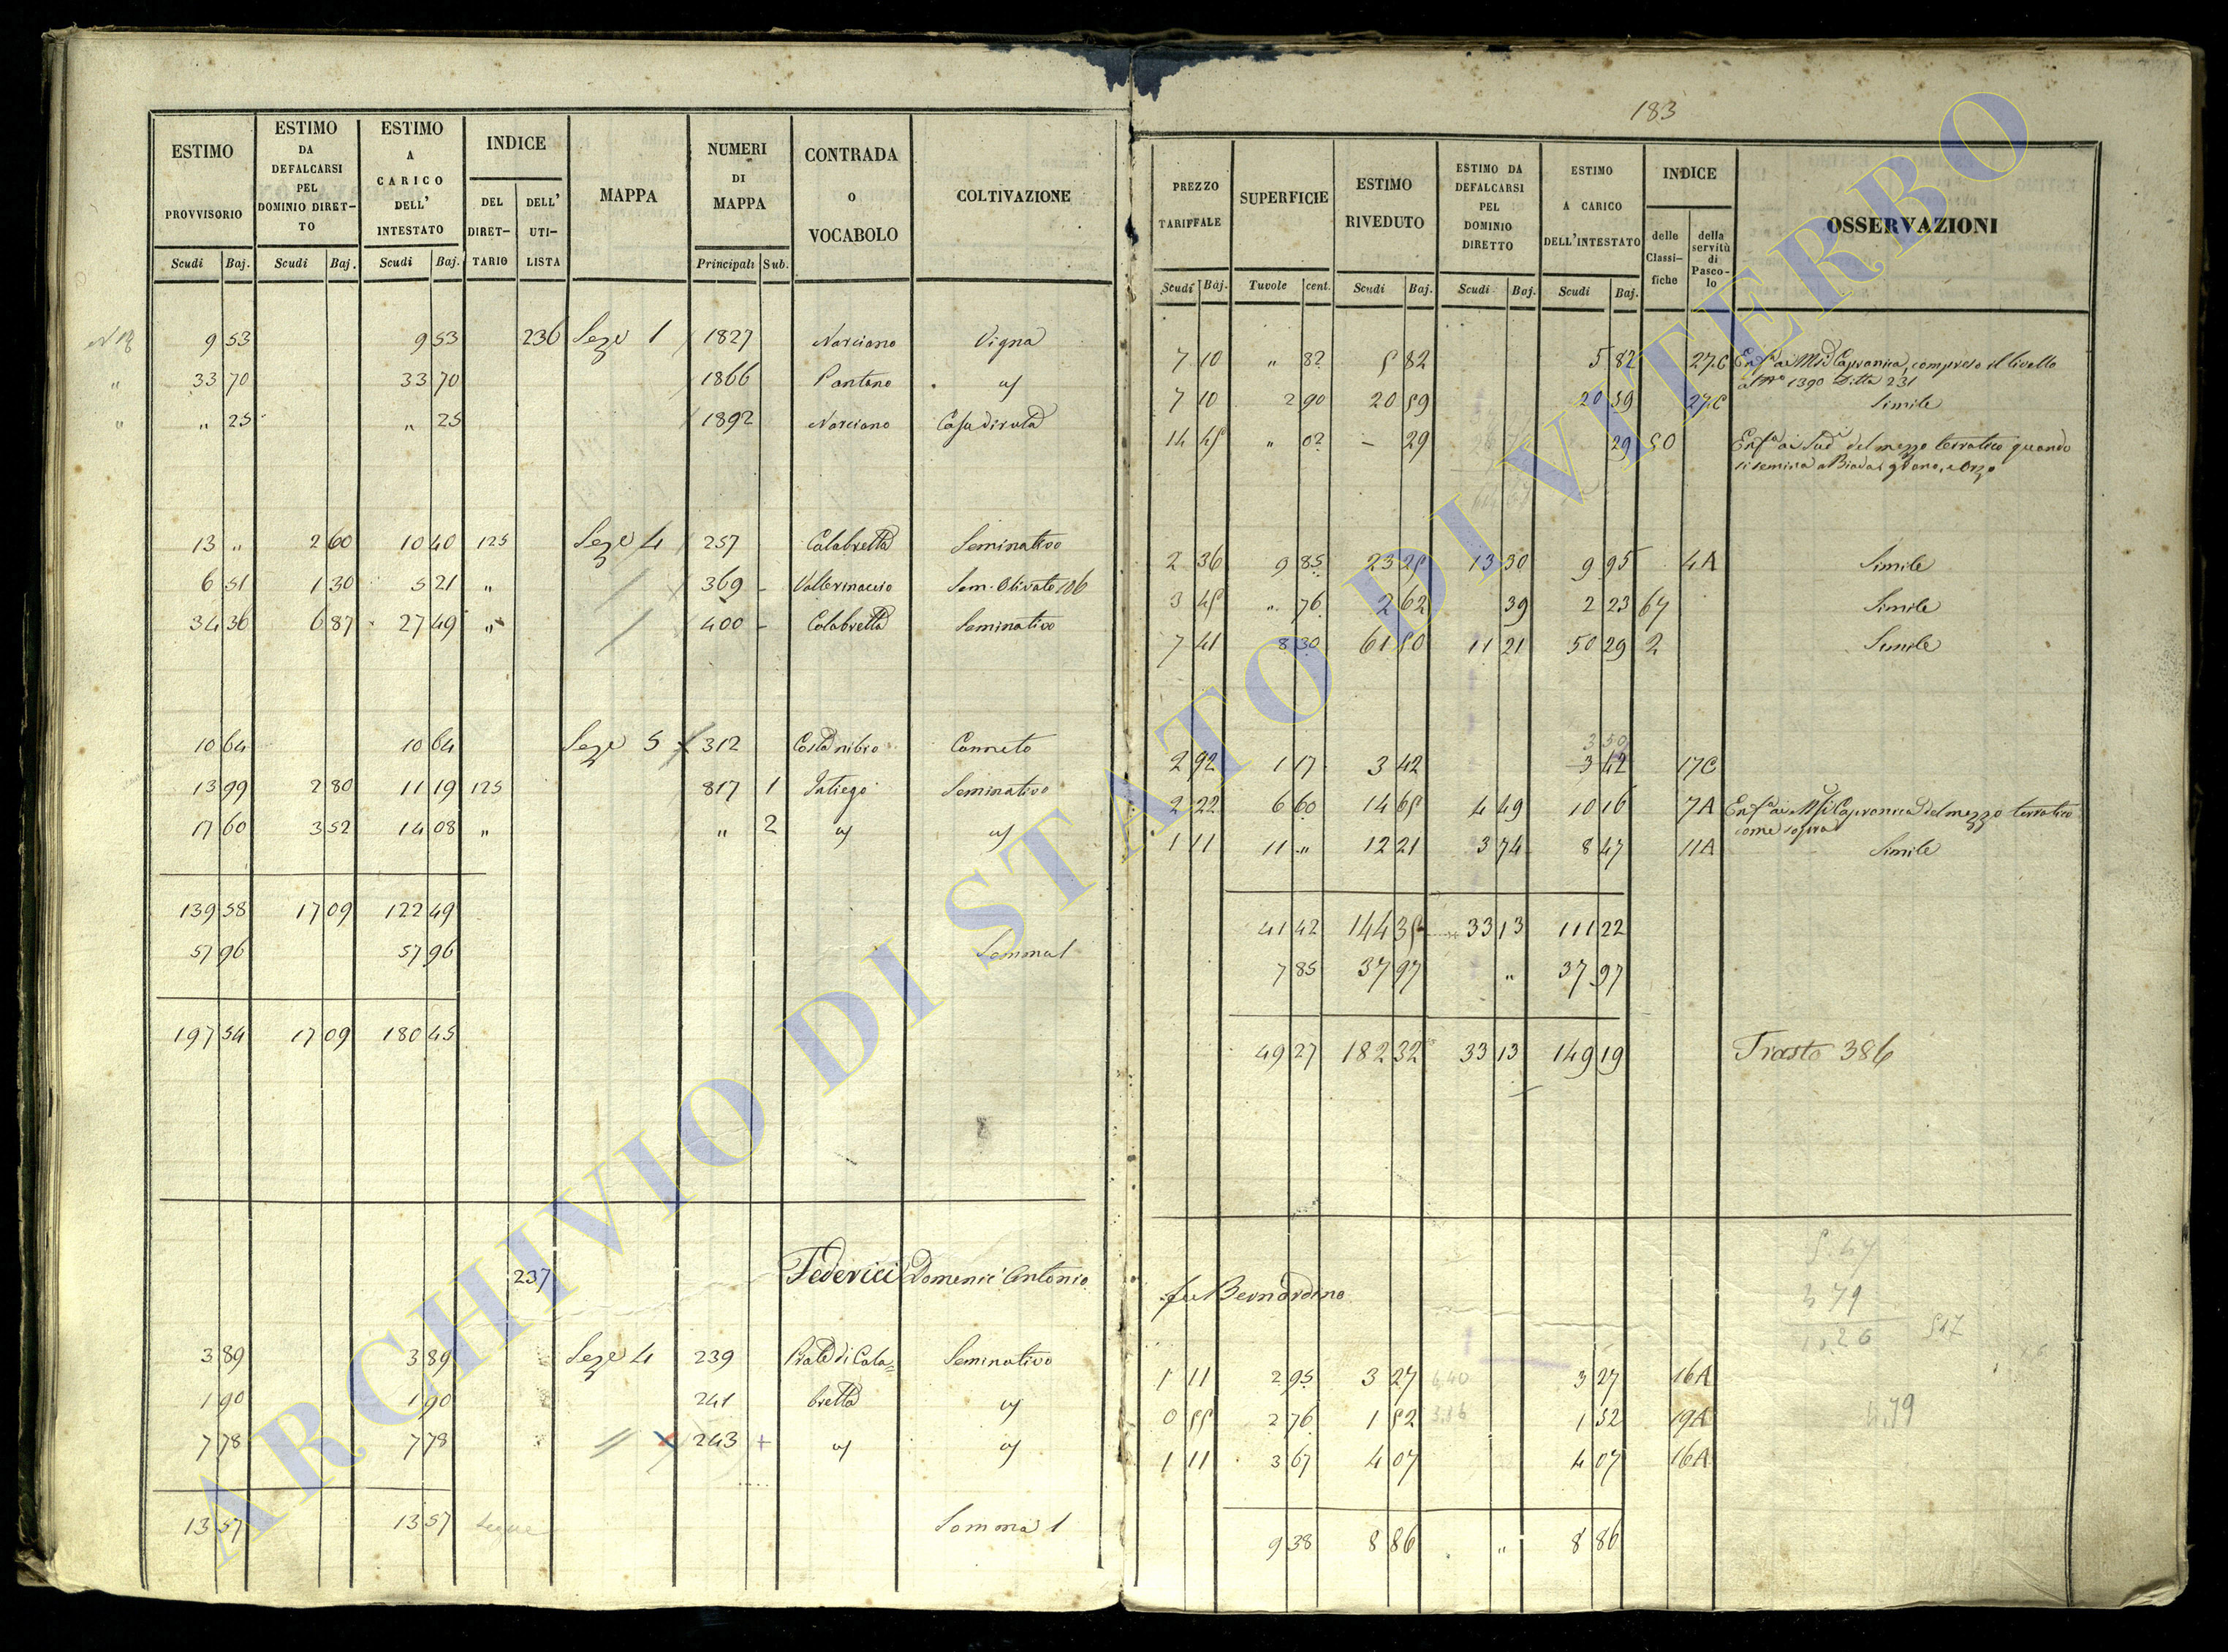 183
ESTIMO PROVVISORIO | ESTIMO DA DEFALCARSI PEL DOMINIO DIRET-TO | ESTIMO A CARICO DELL' INTESTATO | INDICE DEL DIRET-TARIO | INDICE DELL' UTI-LISTA | MAPPA | NUMERI DI MAPPA | CONTRADA o VOCABOLO | COLTIVAZIONE | PREZZO TARIFFALE | SUPERFICIE | ESTIMO RIVEDUTO | ESTIMO DA DEFALCARSI PEL DOMINIO DIRETTO | ESTIMO A CARICO DELL'INTESTATO | INDICE delle Classi-fiche | della servitù di Pasco-lo | OSSERVAZIONI
Scudi Baj. | Scudi Baj. | Scudi Baj. | Principali Sub. | Scudi Baj. | Tavole cent. | Scudi Baj. | Scudi Baj. | Scudi Baj.
9 53 | 9 53 | 236 | Seze 1 | 1827 | Narciano | Vigna | 7 10 | " 82 | 5 82 | 5 82 | 27.C | Enfa ai Capranica, compreso il livello
al No 1390 Ditta 231
" 33 70 | 33 70 | 1866 | Pantano | id | 7 10 | 2 90 | 20 59 | 20 59 | 27.C | Simile
" " 25 | " 25 | 1892 | Narciano | Casa diruta | 14 45 | " 02 | – 29 | 29 | 50 | Enfa ai del mezzo terratico quando
si semina a Biada, grano, e orzo
13 " | 2 60 | 10 40 | 125 | Seze 4 | 257 | Calabretta | Seminativo | 2 36 | 9 85 | 23 25 | 13 30 | 9 95 | 4A | Simile
6 51 | 1 30 | 5 21 | " | 369 | Sem. Olivato 106 | 3 45 | " 76 | 2 62 | 39 | 2 23 | 64 | Simile
34 36 | 6 87 | 27 49 | " | 400 | Calabretta | Seminativo | 7 41 | 8 30 | 61 50 | 11 21 | 50 29 | 2 | Simile
3 50
10 64 | 10 64 | Seze 5 | 312 | Canneto | 2 92 | 1 17 | 3 42 | 3 42 | 17C
13 99 | 2 80 | 11 19 | 125 | 817 | 1 | Seminativo | 2 22 | 6 60 | 14 65 | 4 49 | 10 16 | 7A | Enfa ai Capranica del mezzo terratico
come sopra
17 60 | 3 52 | 14 08 | " | " | 2 | id | id | 1 11 | 11 " | 12 21 | 3 74 | 8 47 | 11A | Simile
139 58 | 17 09 | 122 49 | 41 42 | 144 35 | 33 13 | 111 22
57 96 | 57 96 | Somma 1 | 7 85 | 37 97 | " | 37 97
197 54 | 17 09 | 180 45 | 49 27 | 182 32 | 33 13 | 149 19 | Trasto 386
237 | Federici Domenic' Antonio fu Bernardino
3 79
3 89 | 3 89 | Seze 4 | 239 | Prato di Cala= | Seminativo | 1 11 | 2 95 | 3 27 | 3 27 | 16A
1 90 | 1 90 | 241 | bretta | id | 0 55 | 2 76 | 1 52 | 1 52 | 19A
7 78 | 7 78 | 243 | id | id | 1 11 | 3 67 | 4 07 | 4 07 | 16A
13 57 | 13 57 | Segue | Somma 1 | 9 38 | 8 86 | " | 8 86
ARCHIVIO DI STATO DI VITERBO